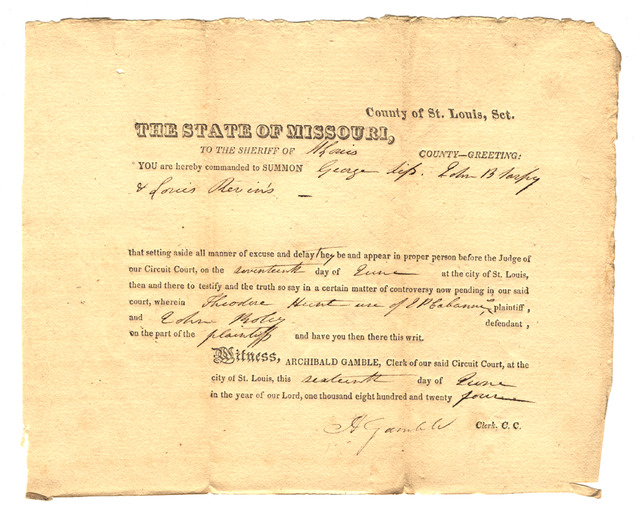 County of St. Louis, Sct.
THE STATE OF MISSOURI,
TO THE SHERIFF OF St Louis COUNTY—GREETING:
YOU are hereby commanded to SUMMON George John B Sarpy
& Louis
that setting aside all manner of excuse and delay they be and appear in proper person before the Judge of
our Circuit Court, on the seventeenth day of June at the city of St. Louis,
then and there to testify and the truth so say in a certain matter of controversy now pending in our said
court, wherein Theodore Hunt use of J P Cabanné plaintiff,
and John defendant,
on the part of the plaintiff and have you then there this writ.
Witness, ARCHIBALD GAMBLE, Clerk of our said Circuit Court, at the
city of St. Louis, this sixteenth day of June
in the year of our Lord, one thousand eight hundred and twenty four
A Gamble Clerk, C. C.